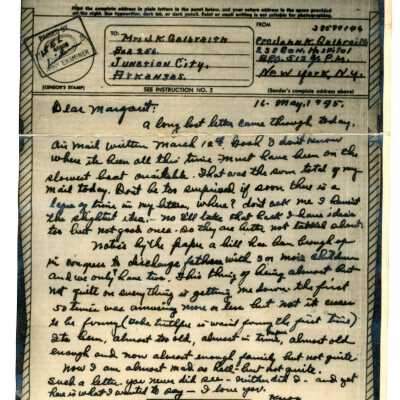 Print the complete address in plain letters in the panel below, and your return address in the space provided
on the right. Use typewriter, dark ink, or dark pencil. Faint or small writing is not suitable for photographing.
TO: FROM
Mrs. J. K. Galbraith
Box 256
Junction City,
Arkansas.
Pvt John K. Galbraith
232 Gen. Hospital
New York, N.Y.
EXAMINER
(CENSOR'S STAMP) SEE INSTRUCTION NO. 2 (Sender's complete address above)
16 May, 1945.
Dear Margaret:
A long lost letter came through today.
Air mail written March 12th. Gosh I don't know
where its been all this time. Must have been on the
slowest boat available. That was the sum total of my
mail today. Don't be too surprised if soon there is a
lapse of time in my letters, where? don't ask me I haven't
the slightest idea. No I'll take that back I have ideas
too but not good ones. so they are better not talked about.
Notice by the paper a bill has been brought up
in congress to discharge fathers with 3 or more children
and we only have two. This thing of being almost but
not quite on everything is getting me down. the first
50 times was amusing more or less but not it ceases
to be funny (to be truthful it wasn't funny the first time)
Its been, almost too old, almost in time, almost old
enough and now almost enough family but not quite.
Now I am almost mad as hell - but not quite.
Such a letter you never did see - neither did I - and yet
here is what I wanted to say - I love you.